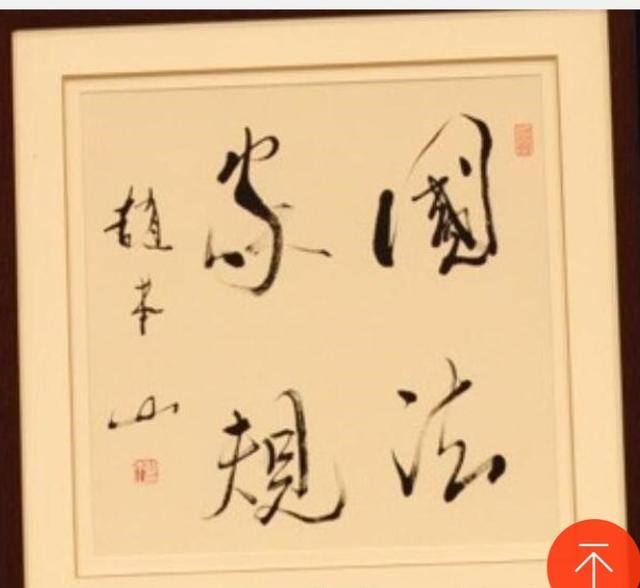 國法
家規
趙本山